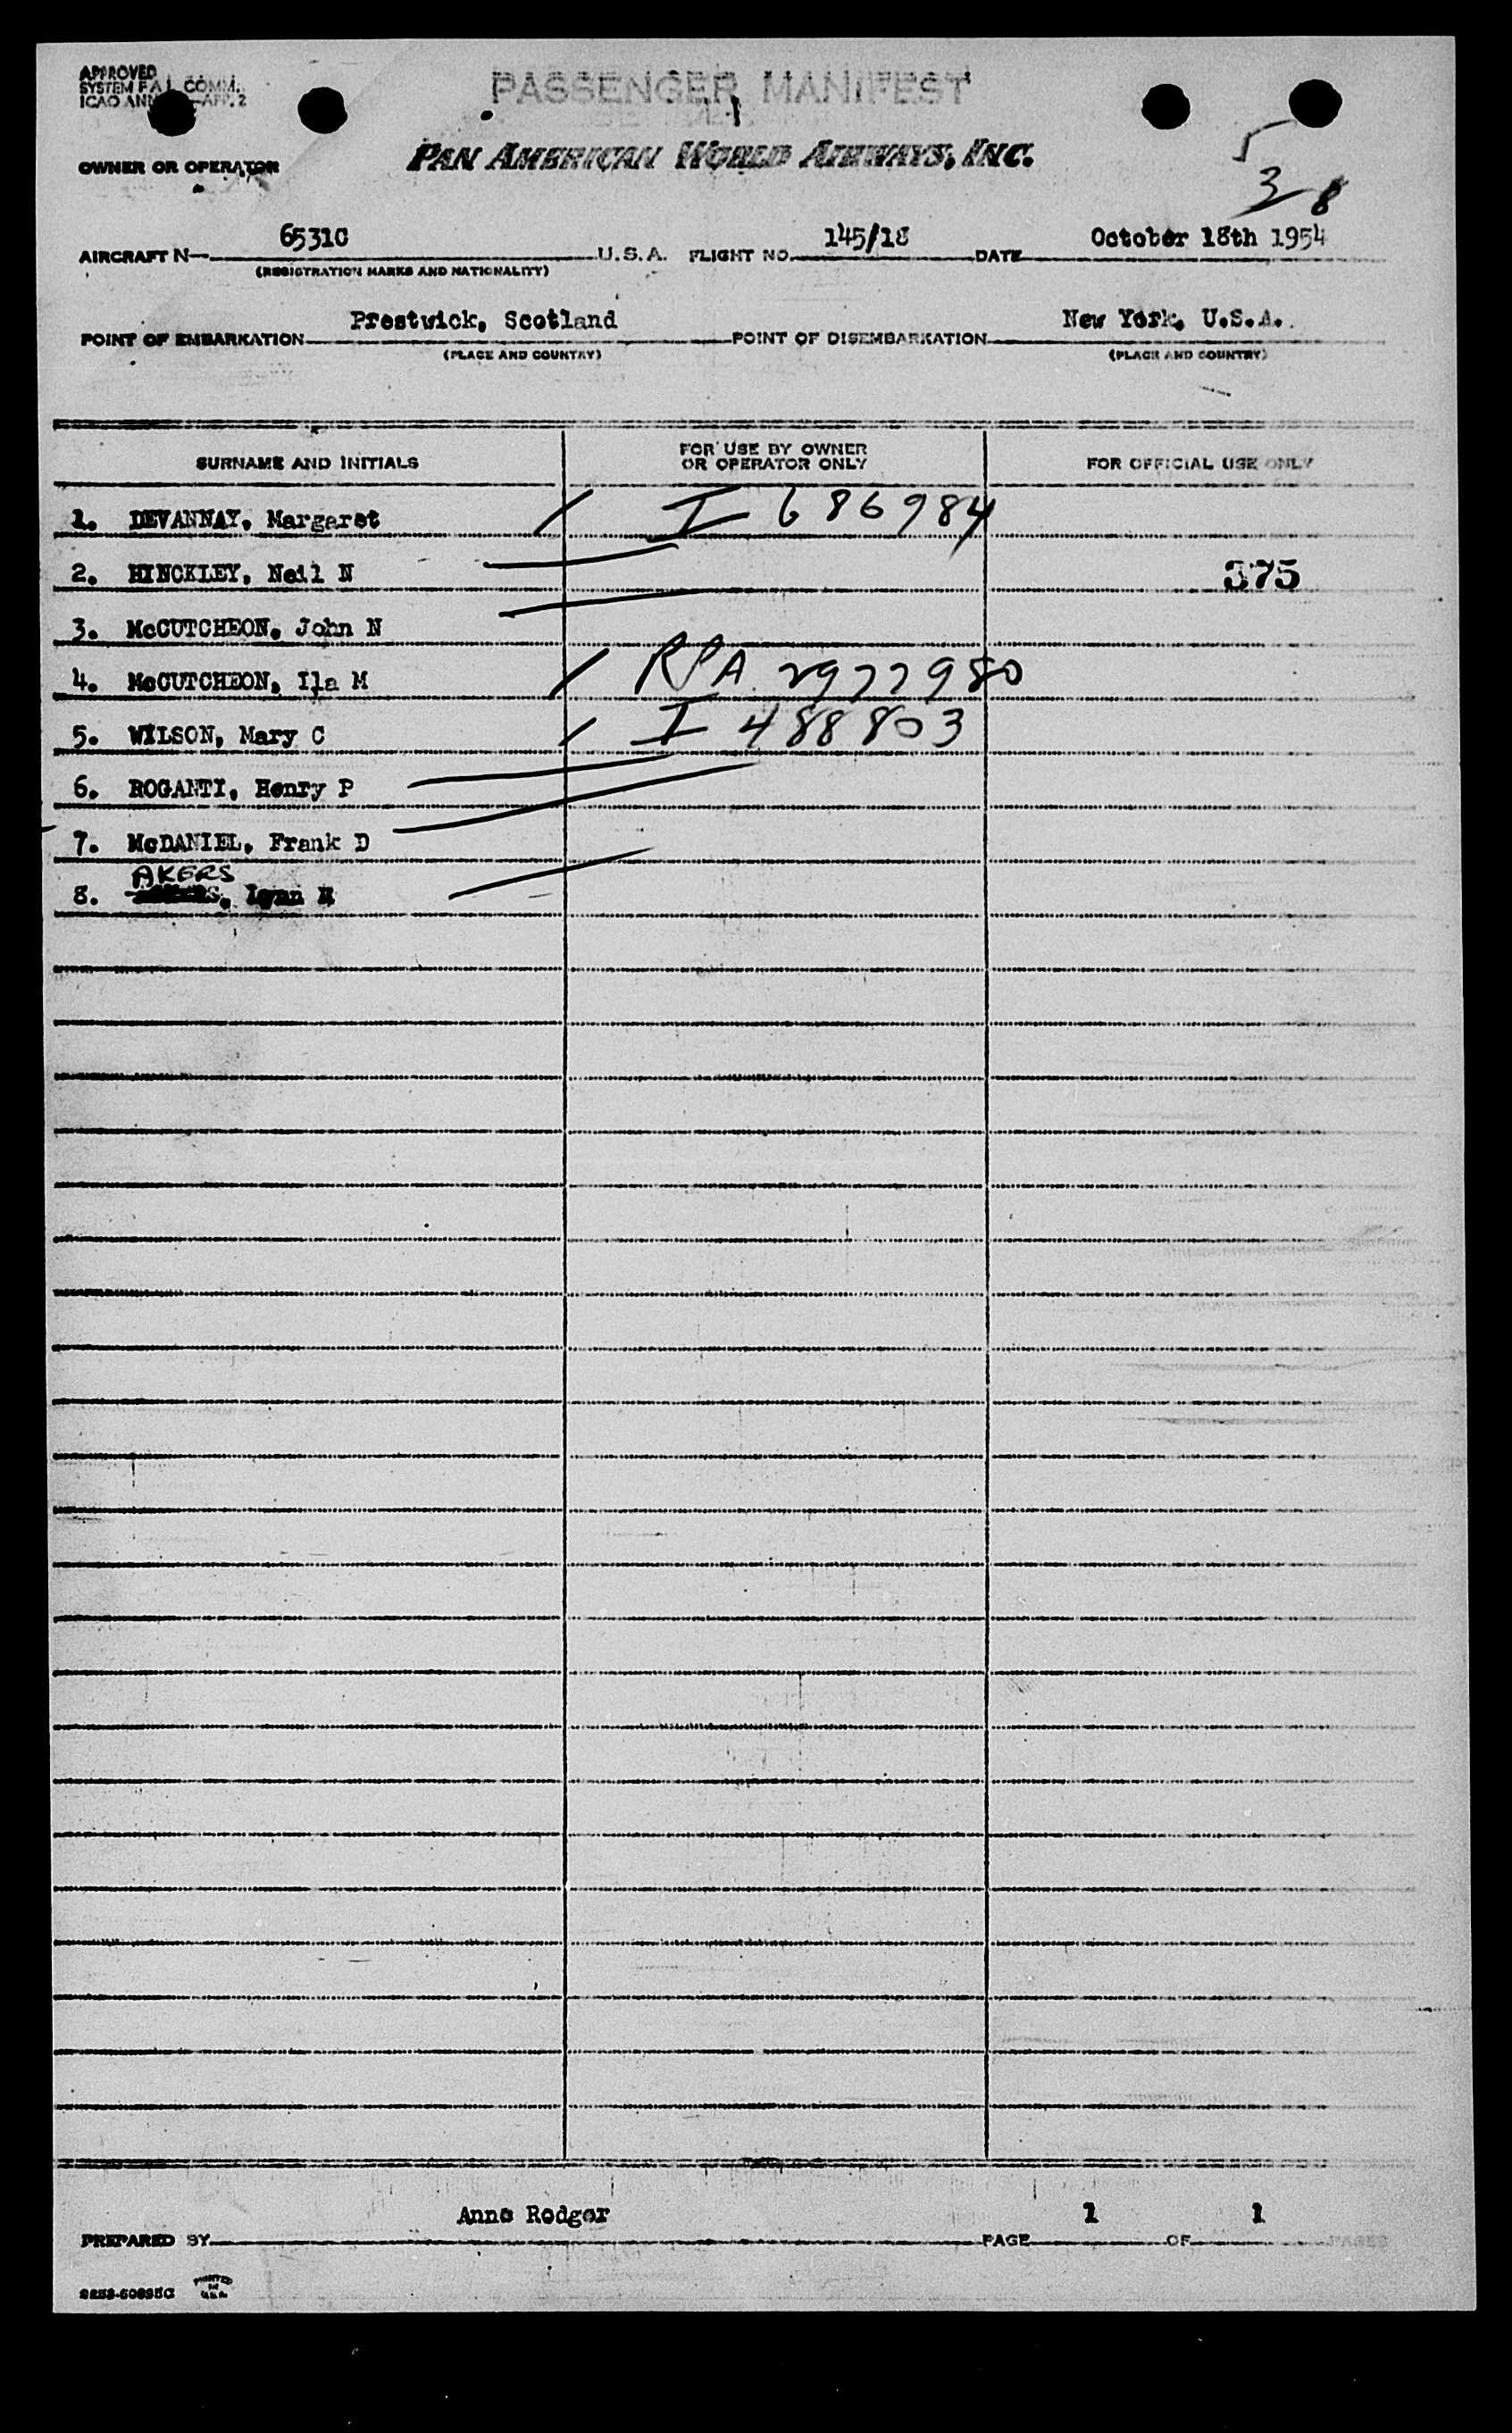 APPROVED
SYSTEM FAL COMM.
ICAO ANN APP. 2
PASSENGER MANIFEST
OWNER OR OPERATOR
PAN AMERICAN WORLD AIRWAYS, INC.
5
3 8
AIRCRAFT N 6531C U.S.A. FLIGHT NO. 145/18 DATE October 18th 1954
(REGISTRATION MARKS AND NATIONALITY)
POINT OF EMBARKATION Prestwick, Scotland POINT OF DISEMBARKATION New York, U.S.A.
(PLACE AND COUNTRY) (PLACE AND COUNTRY)
SURNAME AND INITIALS FOR USE BY OWNER OR OPERATOR ONLY FOR OFFICIAL USE ONLY
1. DEVANNAY, Margaret I 686984
2. HINCKLEY, Neil N 375
3. McCUTCHEON, John N
4. McCUTCHEON, Ila M RPA 2977980
5. WILSON, Mary C I 488803
6. ROGANTI, Henry P
7. McDANIEL, Frank D
AKERS
8. Lynn
PREPARED BY Anne Rodger PAGE 1 OF 1 PAGES
PRINTED IN U.S.A.